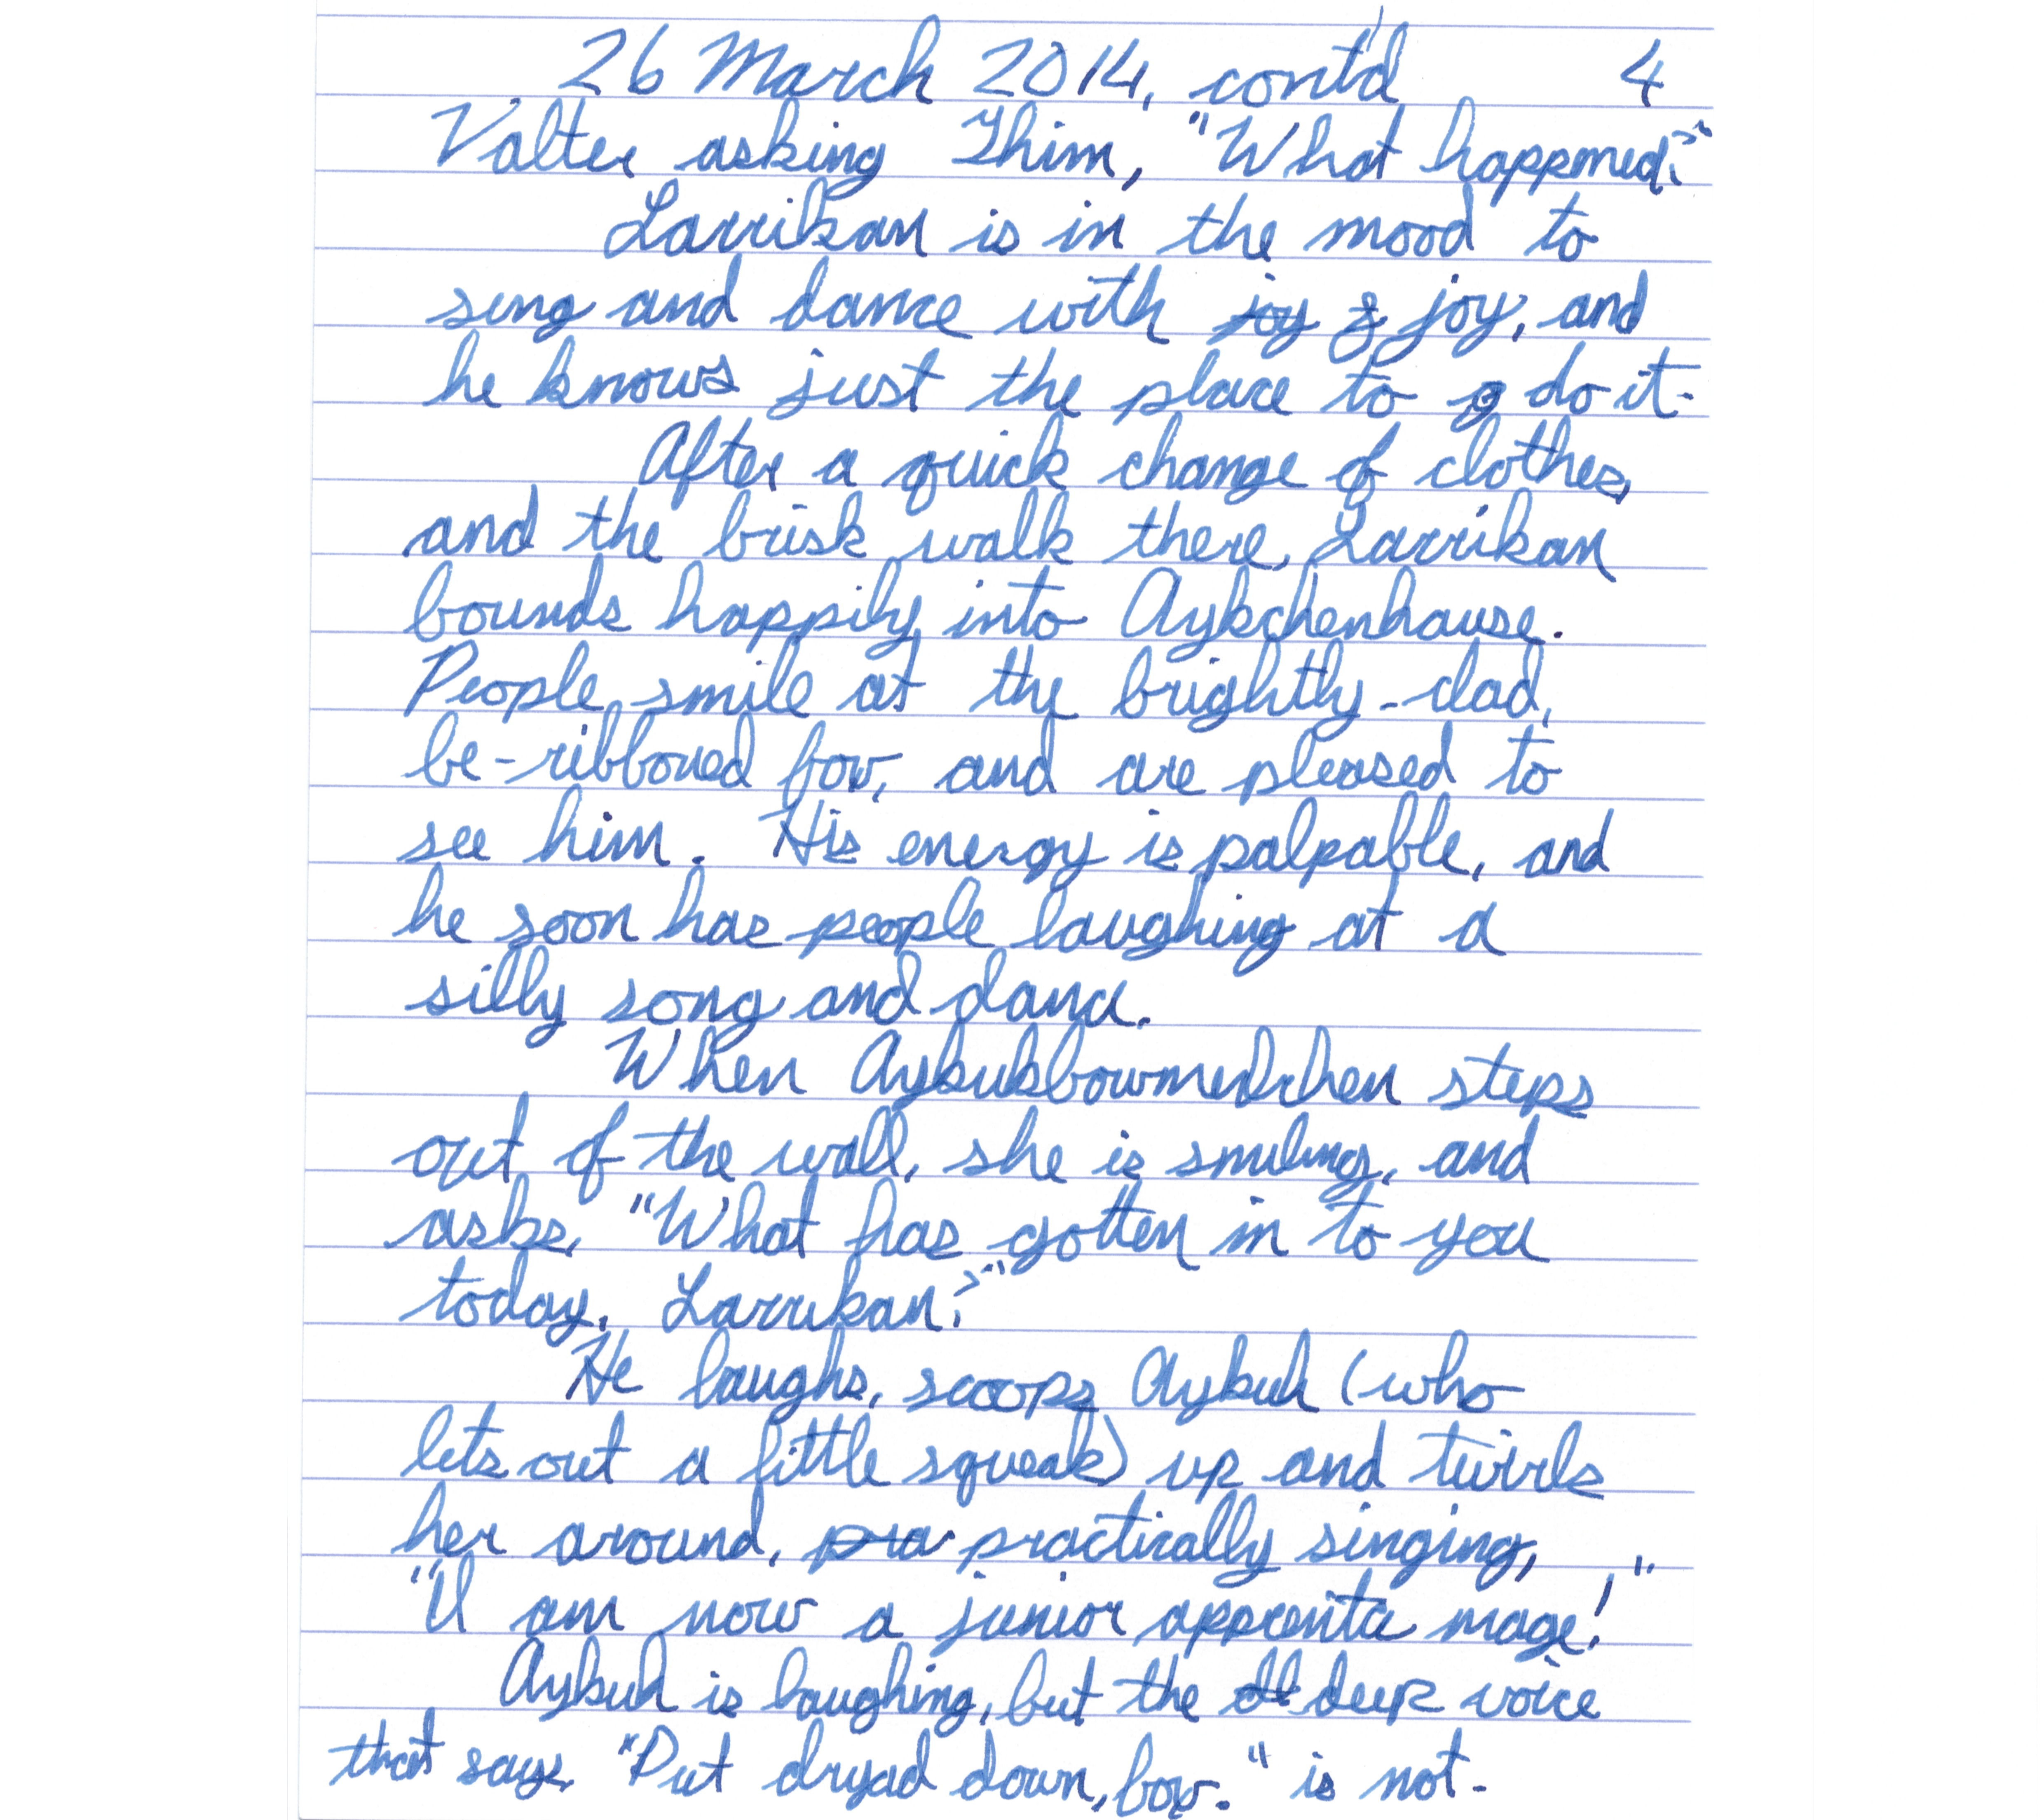 26 March 2014, cont'd 4
Valter asking Thim, "What happened?"
Larrikan is in the mood to
sing and dance with joy & joy, and
he knows just the place to g do it.
After a quick change of clothes,
and the brisk walk there, Larrikan
bounds happily into Aykchenhause.
People smile at the brightly-clad,
be-ribboned boy, and are pleased to
see him. His energy is palpable, and
he soon has people laughing at a
silly song and dance.
When Aykukbowmenchen steps
out of the wall, she is smiling, and
asks, "What has gotten in to you
today, Larrikan?"
He laughs, scoops Aykuh (who
lets out a little squeak) up and twirls
her around, pra practically singing,
"I am now a junior apprentice mage!"
Aykuh is laughing, but the deep voice
that says, "Put dryad down, boy." is not.